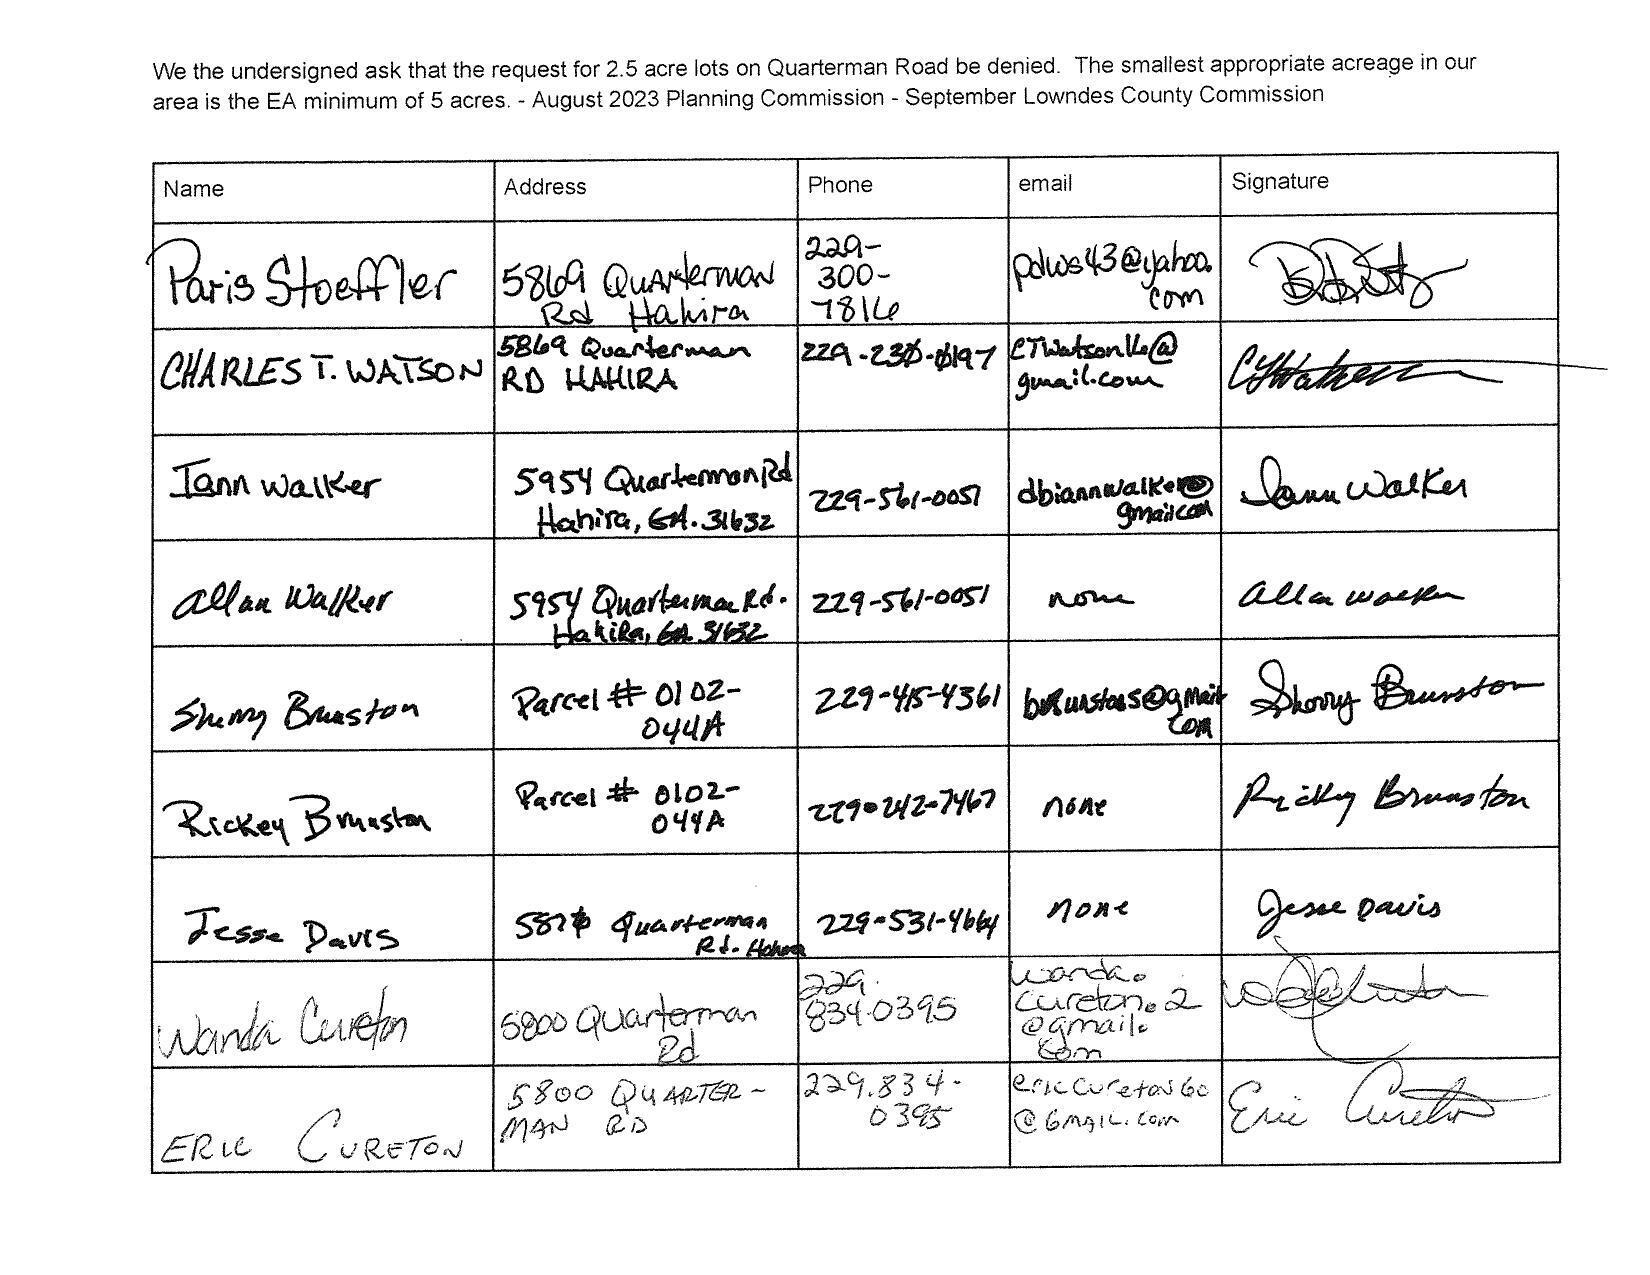 We the undersigned ask that the request for 2.5 acre lots on Quarterman Road be denied. The smallest appropriate acreage in our
area is the EA minimum of 5 acres. - August 2023 Planning Commission - September Lowndes County Commission
Name
Address
Phone
email
Signature
Paris Stoeffler
5869 Quarterman
Rd Hahira
229-
300-
7816
pdws43@yahoo.
com
CHARLES T. WATSON
5869 Quarterman
RD HAHIRA
229-230-0197
CTWatson16@
gmail.com
CTWatson
Iann Walker
5954 Quarterman Rd
Hahira, GA. 31632
229-561-0051
dbiannwalker@
gmail.com
Iann Walker
Allan Walker
5954 Quarterman Rd.
Hahira, GA 31632
229-561-0051
none
Allan Walker
Sherry Brunston
Parcel # 0102-
044A
229-415-4361
@gmail
com
Sherry Brunston
Rickey Brunston
Parcel # 0102-
044A
229-242-7467
none
Rickey Brunston
Jesse Davis
5870 Quarterman
Rd. Hahira
229-531-4664
none
Jesse Davis
Wanda Cureton
5800 Quarterman
Rd
229.
834-0395
wanda.
cureton.2
@gmail.
com
ERIC CURETON
5800 QUARTER-
MAN RD
229.834-
0395
ericcureton60
@GMAIL.com
Eric Cureton